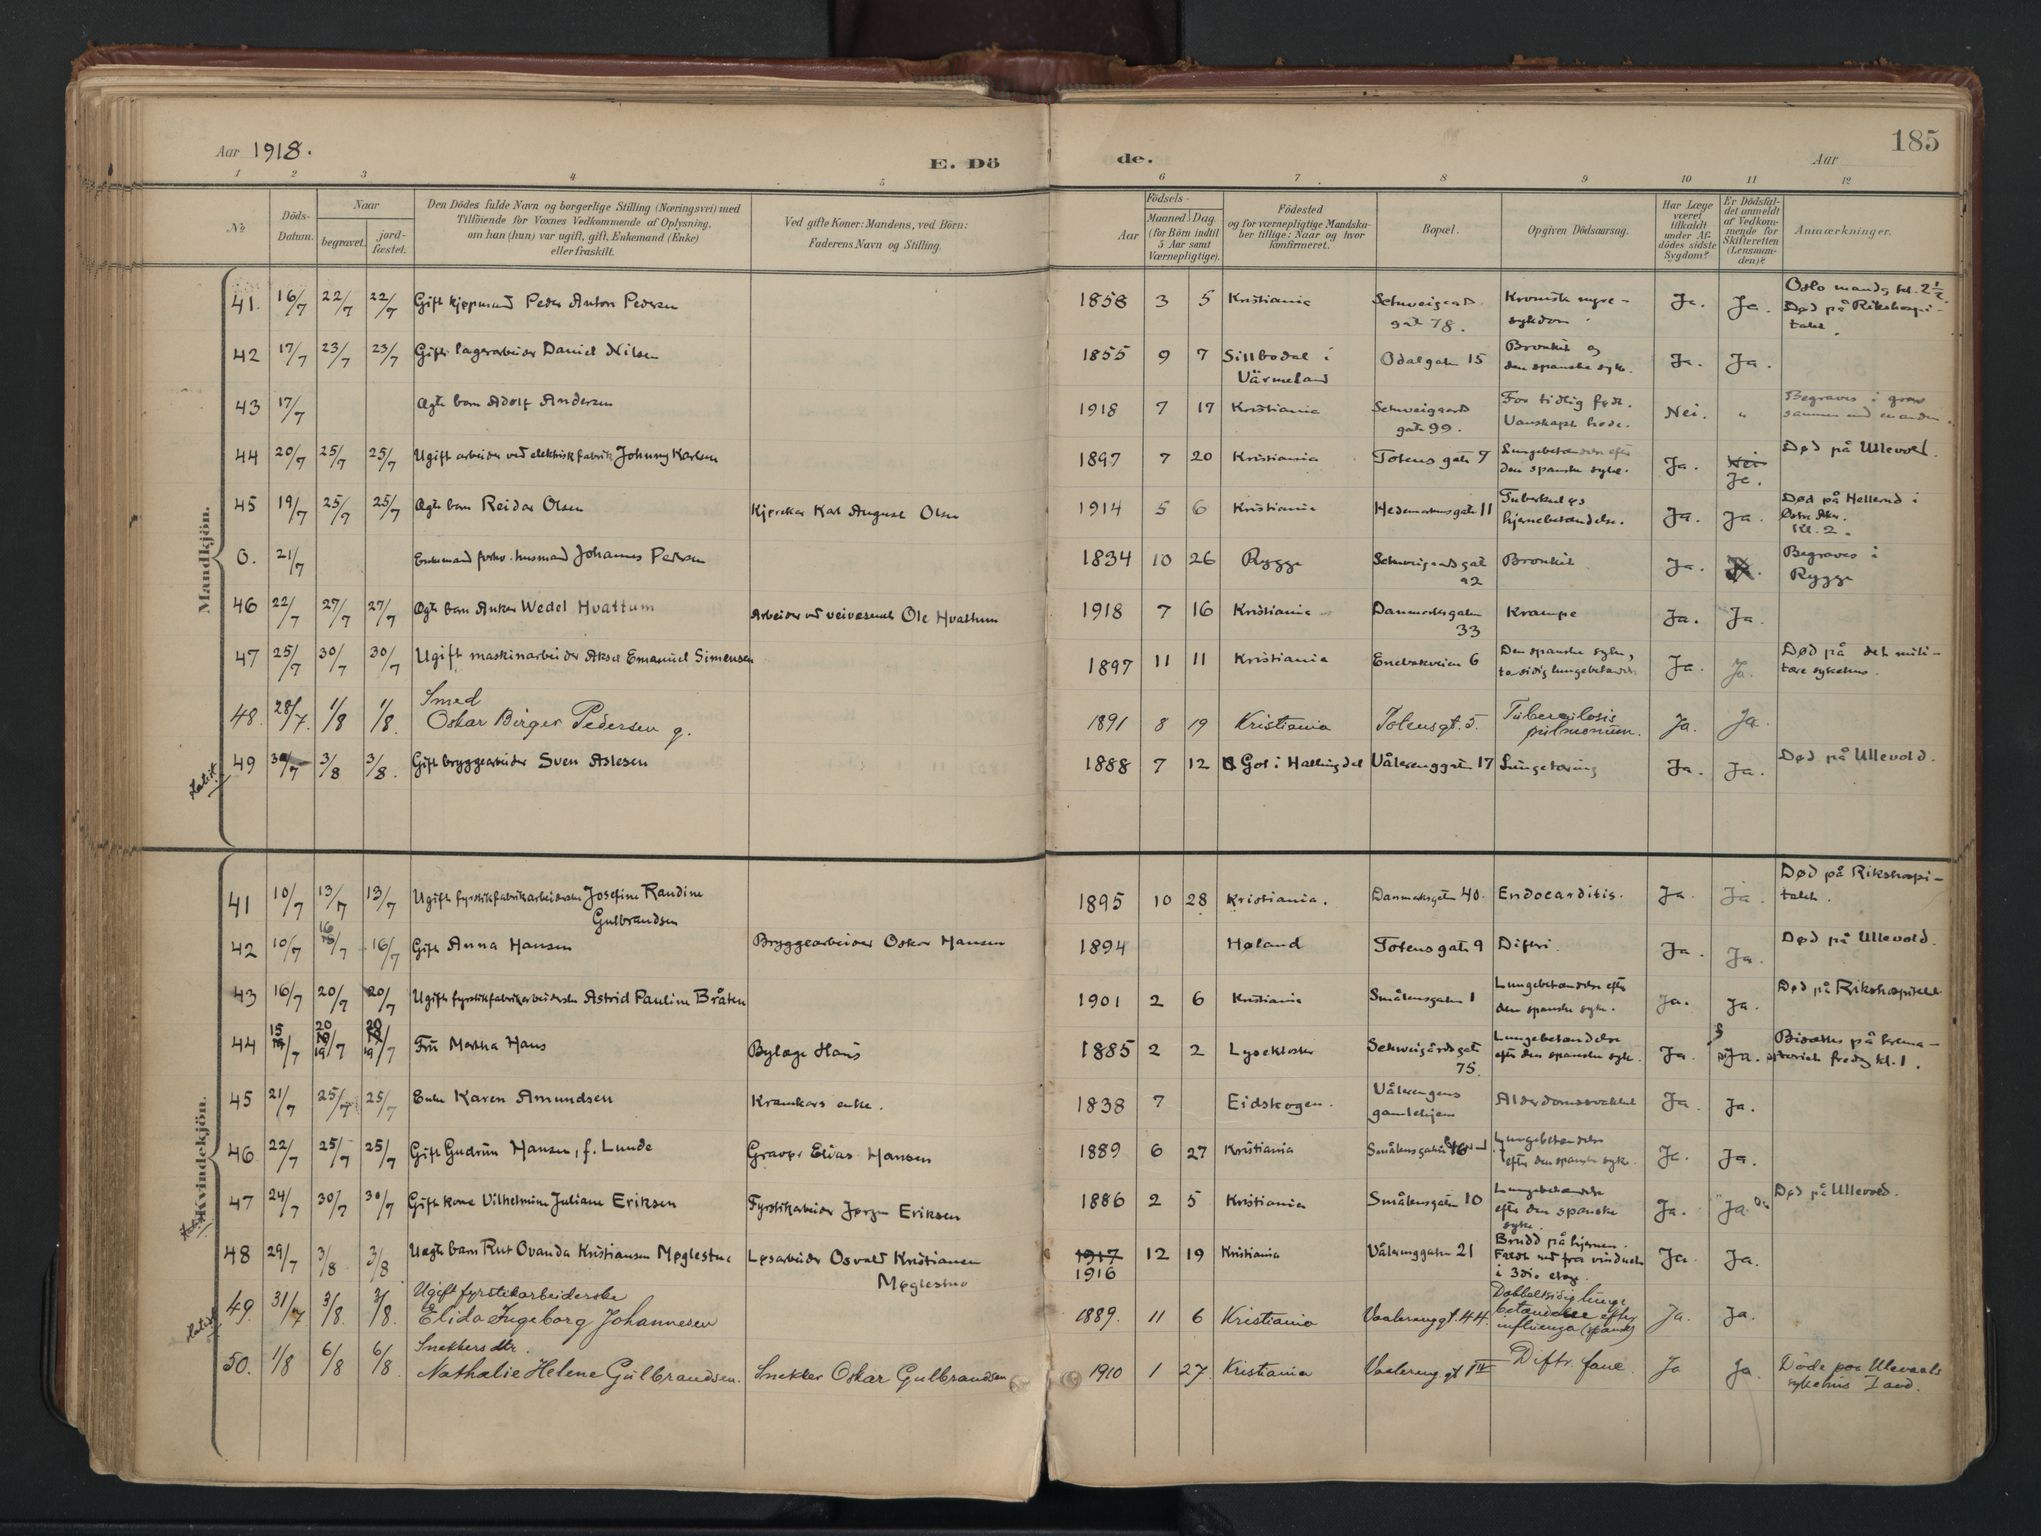 185
Aar 1918.
E. Dö
de.
Aar
1 2 3 4 5 6 7 8 9 10 11 12
№
Döds-
Datum.
Naar
begravet.
jord-
fæstet.
Den Dödes fulde Navn og borgerlige Stilling (Næringsvei) med
Tilföiende for Voxnes Vedkommende af Oplysning,
om han (hun) var ugift, gift, Enkemand (Enke)
eller fraskilt.
Ved gifte Koner: Mandens, ved Börn:
Faderens Navn og Stilling.
Aar
Födsels-
Maaned. Dag.
(for Börn indtil
5 Aar samt
Værnepligtige).
Födested
og for værnepligtige Mandska-
ber tillige: Naar og hvor
konfirmeret.
Bopæl.
Opgiven Dödsaarsag.
Har Læge
været
tilkaldt
under Af-
dödes sidste
Sygdom?
Er Dödsfal-
det anmeldt
af Vedkom-
mende for
Skifteretten
(Lensman-
den)?
Anmærkninger.
Mandkjön.
41. 16/7 22/7 22/7 Gift kjøpmand Peder Anton Pedersen 1858 3 5 Kristiania Schweigaards
gate 78. Kronisk nyre-
sykdom. Ja. Ja. Oslo mandag kl. 2 1/2.
Død på Rikshospi-
talet.
42 17/7 23/7 23/7 Gift lagerarbeider Daniel Nilsen 1855 9 7 Sillbodal i
Värmeland Odalgaten 15 Bronkit og
den spanske syke. Ja. Ja.
43 17/7 Ægte barn Adolf Andersen 1918 7 17 Kristiania Schweigaards
gate 99. For tidlig født.
Vanskapt hode. Nei. " Begraves i grav
sammen med en anden.
44 20/7 25/7 25/7 Ugift arbeider ved elektrisk fabrik Johnny Karlsen 1897 7 20 Kristiania Totens gate 7 Lungebetændelse efter
den spanske syke. Ja. Nei
Ja. Død på Ullevold.
45 19/7 25/7 25/7 Ægte barn Reidar Olsen Kjørekar Karl August Olsen 1914 5 6 Kristiania Hedemarksgate 11 Tuberkuløs
hjernebetændelse. Ja. Ja. Død på Hellerud i
Østre Aker.
Kl. 2.
0. 21/7 Enkemand forhv. husmand Johannes Pedersen 1834 10 26 Rygge Schweigaards gate
92 Bronkit. Ja. Begraves i
Rygge
46 22/7 27/7 27/7 Ægte barn Anker Wedel Hvattum Arbeider ved veivæsenet Ole Hvattum 1918 7 16 Kristiania Danmarksgaten
33 Krampe Ja. Ja.
47 25/7 30/7 30/7 Ugift maskinarbeider Aksel Emanuel Simensen 1897 11 11 Kristiania Enebakveien 6 Den spanske syke,
tosidig lungebetændelse Ja. Ja. Død på det mili-
tære sykehus.
48. 28/7. 1/8 1/8. Smed
Oskar Birger Pedersen g. 1891 8 19 Kristiania Totensgt. 5. Tuberculosis
pulmonum. Ja. Ja.
49 30/7 3/8 3/8. Gift bryggearbeider Sven Aslesen 1888 7 12 Gol i Hallingdal Vålerenggaten 17 Lungetæring Ja. Ja. Død på Ullevold.
Kvindekjön.
41 10/7 13/7 13/7 Ugift fyrstikfabrikarbeiderske Josefine Randine
Gulbrandsen 1895 10 28 Kristiania. Danmarksgaten 40. Endocarditis. Ja. Ja. Død på Rikshospi-
talet.
42 10/7 16/7 16/7 Gift Anna Hansen Bryggearbeider Oskar Hansen 1894 Høland Totens gate 9 Difteri. Ja. Ja. Død på Ullevold.
43 16/7 20/7 20/7 Ugift fyrstikfabrikarbeiderske Astrid Pauline Bråten 1901 2 6 Kristiania Smålensgaten 1 Lungebetændelse efter
den spanske syke. Ja. Ja. Død på Rikshospitalet
44 15/7 20/7 20/7 Fru Martha Hans Bylæge Hans 1885 2 2 Lysekloster Schweigårdsgate
75. Lungebetændelse
efter den spanske syke. Ja. Ja. Bisættes på krema-
toriet fredag kl. 1.
45 21/7 25/7 25/7 Enke Karen Amundsen Kramkars enke. 1838 7 Eidskogen. Vålerengens
gamlehjem Alderdomssvakhet Ja. Ja.
46 22/7 25/7 25/7 Gift Gudrun Hansen, f. Lunde Graver Elias Hansen 1889 6 27 Kristiania Smålensgaten Lungebetændelse
efter den spanske syke. Ja. Ja.
47 24/7 30/7 30/7 Gift kone Vilhelmine Juliane Eriksen Fyrstikarbeider Jørgen Eriksen 1886 2 5 Kristiania Smålensgaten 10 Lungebetændelse
efter den spanske
syke. Ja. Ja Død på Ullevold.
48 29/7 3/8 3/8 Uægte barn Rut Ovanda Kristiansen Møglestue Løsarbeider Osvald Kristiansen
Møglestue 1917
1916 12 19 Kristiania Vålerenggaten 21 Brudd på hjernen.
Faldt ned fra vinduet
i 3die etage. Ja. Ja.
49. 31/7 3/8. 3/8. Ugift fyrstikarbeiderske
Elida Ingeborg Johannesen 1889. 11 6 Kristiania Vaalerenggt. 44. Dobbeltsidig lunge
betændelse efter
influenza (spansk) Ja. Ja.
50. 1/8 6/8 6/8. Snekkers dtr.
Nathalie Helene Gulbrandsen. Snekker Oskar Gulbrandsen 1910 1 27. Kristiania Vaalereng.gt Difter. fauc. Ja Ja. Døde paa Ulevaals
sykehus I avd.